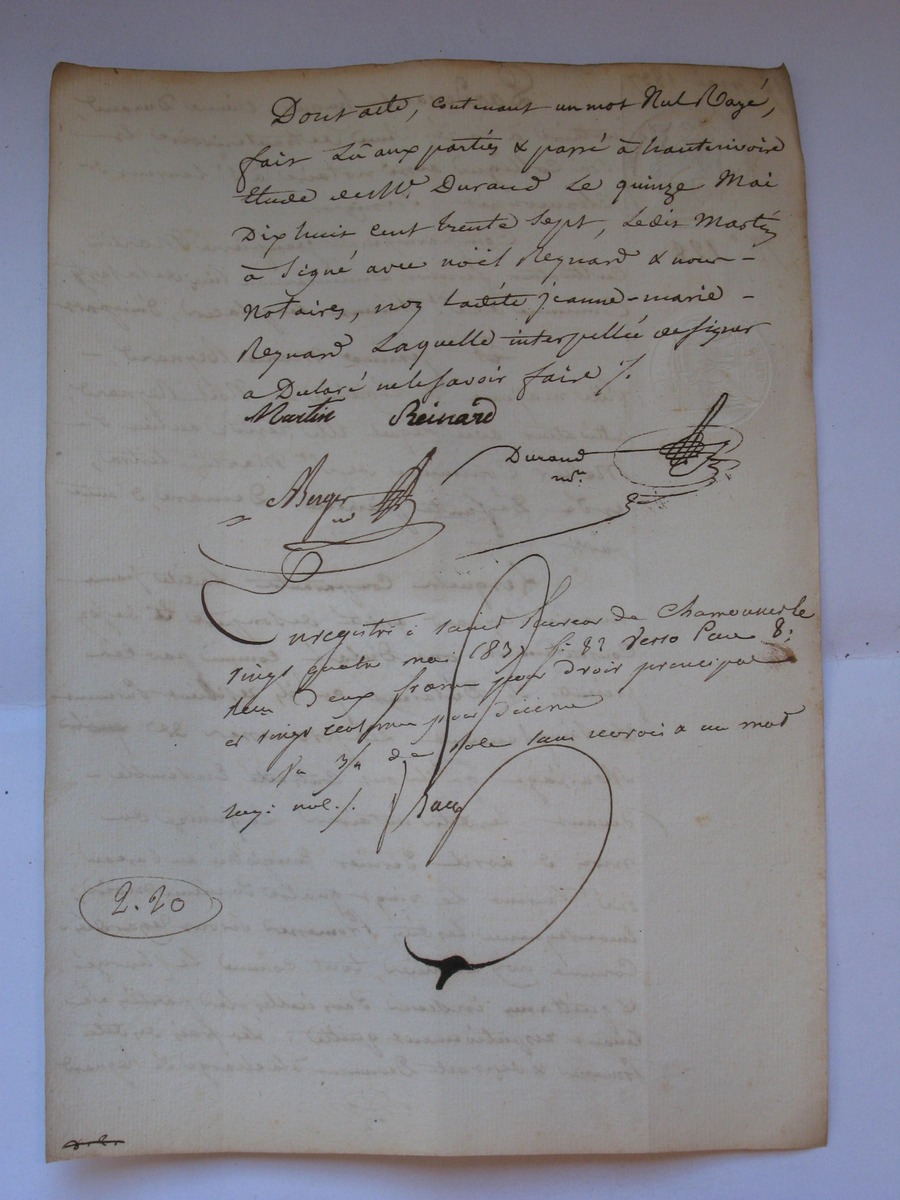 Dont acte, contenant un mot Nul Rayé,
fait Lû aux parties & passé à hauterivoire
Etude de Me. Durand Le quinze Mai
Dix huit cent trente Sept, Ledit Martin
à Signé avec noël Reynard & nous -
Notaires, non Ladite jeanne-marie -
Reynard Laquelle interpellée de signer
a Declaré ne le savoir faire ./.
Martin Reinard
Durand
nre.
Berger
nre
Enregistré à saint de Chamousset le
vingt quatre mai 1837 fo. 82 verso Case 8:
reçu deux francs pour droit principal
et vingt centimes pour décime
de Role sans renvoi a un mot
rayé nul ./.
2.20